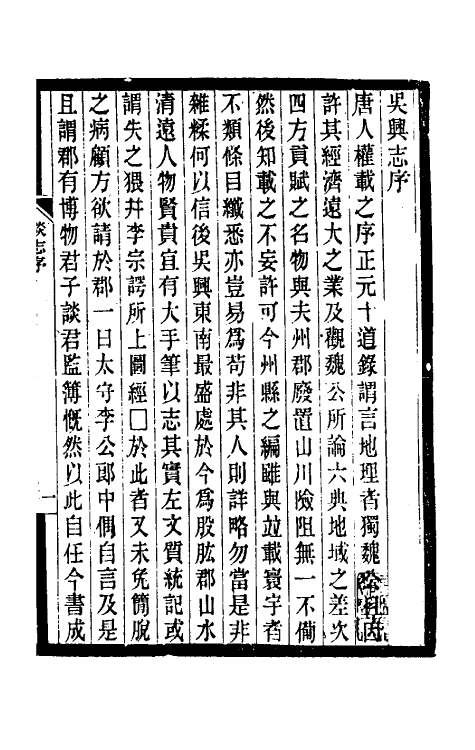 吳興志序
唐人權載之序正元十道錄謂言地理者獨魏公因
許其經濟遠大之業及觀魏公所論六典地域之差次
四方貢賦之名物與夫州郡廢置山川險阻無一不僃
然後知載之不妄許可今州縣之編雖與竝載寰宇者
不類條目纖悉亦豈易為苟非其人則詳略勿當是非
雜糅何以信後吳興東南最盛處於今為股肱郡山水
清遠人物賢貴宜有大手筆以志其實左文質統記或
謂失之猥幷李宗諤所上圖經□於此者又未免簡脫
之病顧方欲請於郡一日太守李公郎中偶自言及是
且謂郡有博物君子談君監簿慨然以此自任今書成
談志序
一